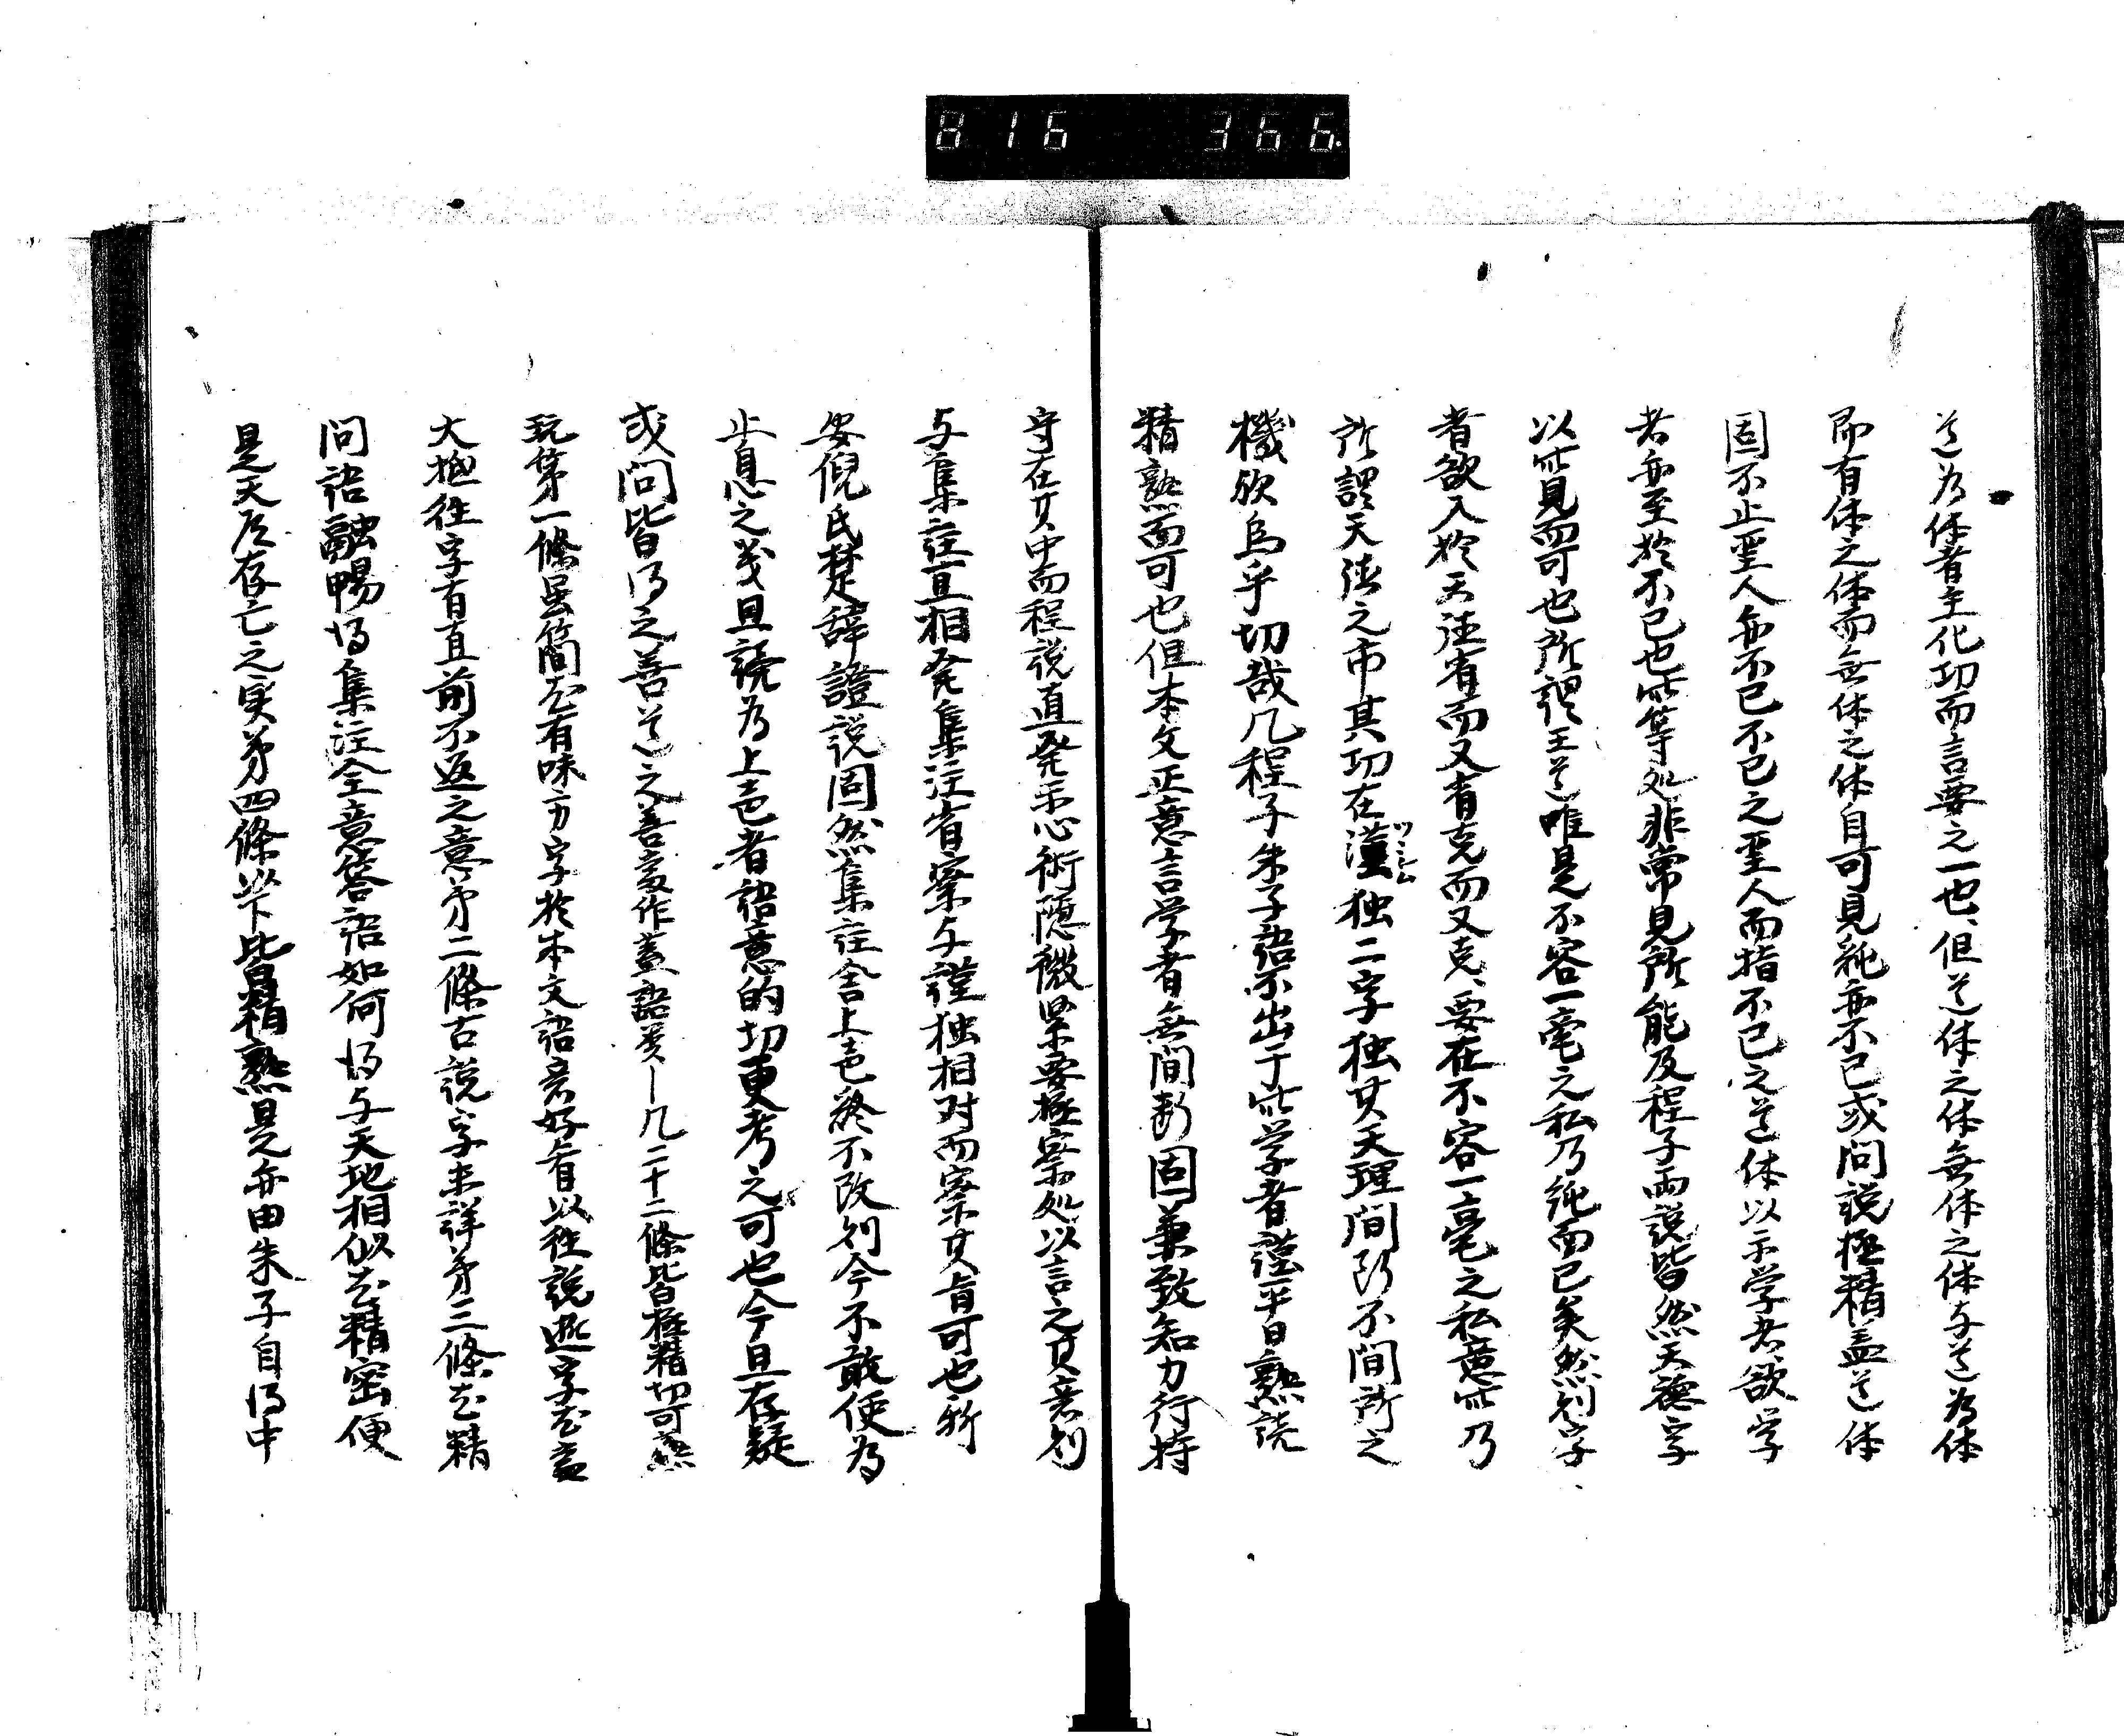 816 366
道为体者主化功而言要之一也、但道体之体無体之体与道為体
即有体之体而無体之体自可見純亦不已或问説極精盖道体
固不止聖人亦不已不已之聖人而指不已之道体以示学者欲学
者亦至於不已也此等処非常見所能及程子両説皆然天徳字
以此見而可也所謂王道唯是不容一毫之私乃純而已矣然則学
者欲入於天徳有而又有克而又克、要在不容一毫之私意此乃
所謂天徳之市其功在謹ツヽシム独二字独其天理间断不间断之
機欤烏乎切哉凡程子朱子語不出于此学者謹平日熟読
精熟而可也但本文正意言学者無间断固兼致知力行持
守在其中而程説直発示心術隠微緊要極密処以言之其意則
与集註互相発集注省察与謹独相対而察其旨可也所
安倪氏楚辞證説固然集註舎上声終不改則今不敢使為
止息之義且読为上声者語意的切更考之可也今且存疑
或问皆得之善道之善京作蓋語类一凡二十二條皆極精切可熟
玩第一條虽简尤有味方字於本文語意好看以往説逝字尤意
大抵往字有直前不返之意第二條古説字未詳第三條尤精
问語融暢得集注全意答語如何得与天地相似尤精密便
是天尽存亡之実第四條以下皆精熟是亦由朱子自得中